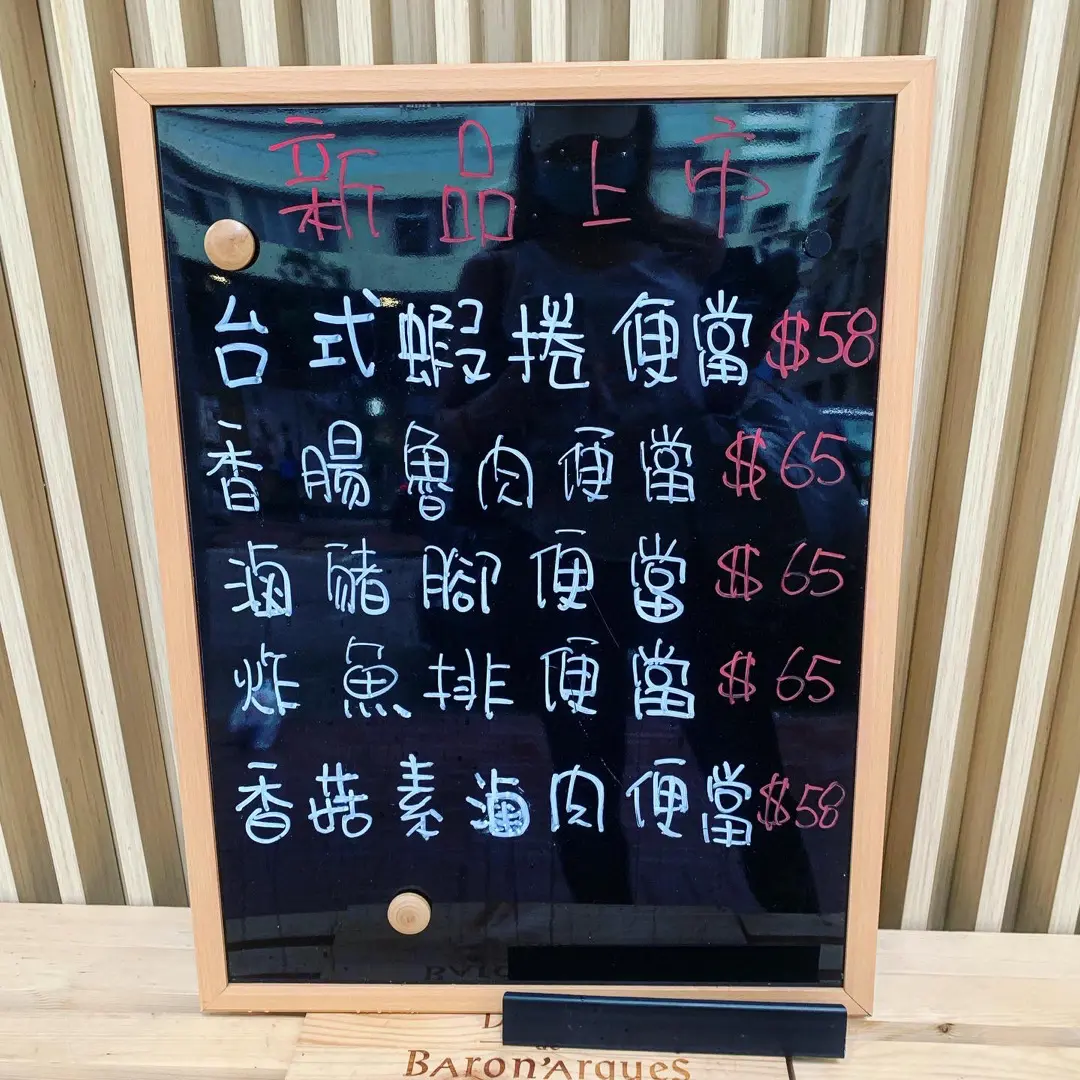 新品上市
台式蝦捲便當$58
香腸魯肉便當$65
滷豬腳便當$65
炸魚排便當$65
香菇素滷肉便當$58
de
BARON'ARQUES